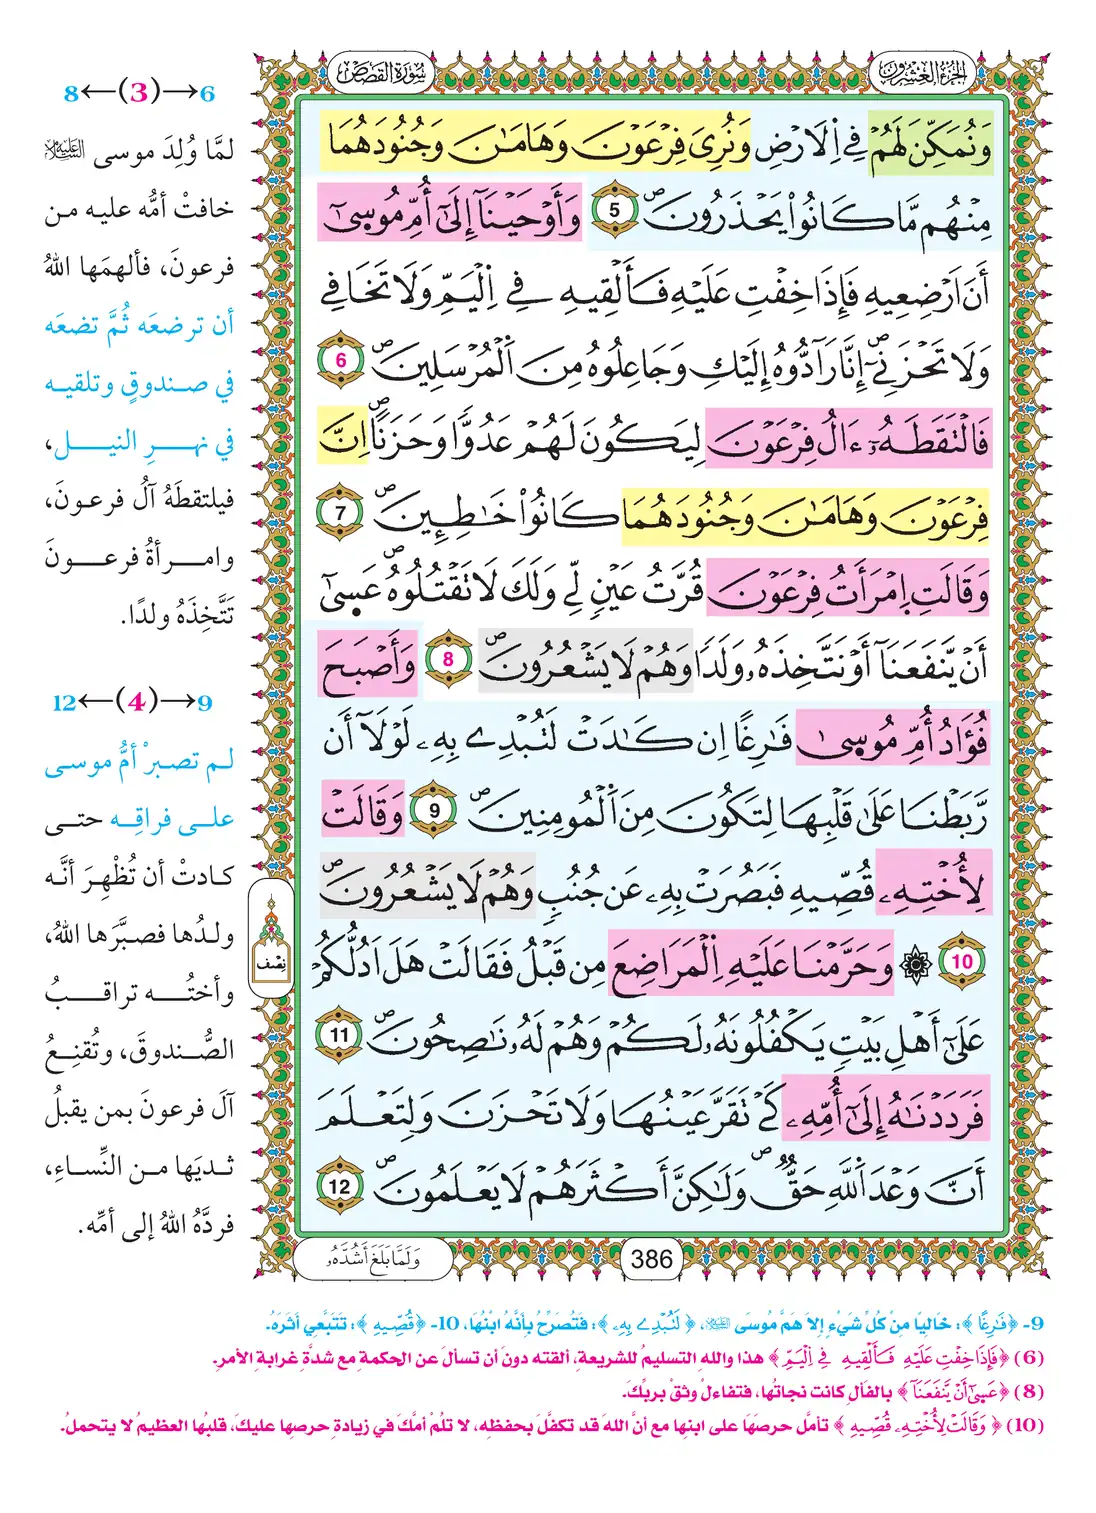 الجزء العشرون
سورة القصص
وَنُمَكِّنَ لَهُمْ فِے اِلَارْضِ وَنُرِيَ فِرْعَوْنَ وَهَامَٰنَ وَجُنُودَهُمَا
مِنْهُم مَّا كَانُواْ يَحْذَرُونَۖ 5 وَأَوْحَيْنَآ إِلَىٰٓ أُمِّ مُوسَىٰٓ
أَنَ اَرْضِعِيهِ فَإِذَا خِفْتِ عَلَيْهِ فَأَلْقِيهِ فِے اِلْيَمِّ وَلَا تَخَافِے
وَلَا تَحْزَنِےٓۖ إِنَّا رَآدُّوهُ إِلَيْكِ وَجَاعِلُوهُ مِنَ اَلْمُرْسَلِينَۖ 6
فَالْتَقَطَهُۥٓ ءَالُ فِرْعَوْنَ لِيَكُونَ لَهُمْ عَدُوّٗا وَحَزَناًۖ اِنَّ
فِرْعَوْنَ وَهَامَٰنَ وَجُنُودَهُمَا كَانُواْ خَٰطِـِٕينَۖ 7
وَقَالَتِ اِمْرَأَتُ فِرْعَوْنَ قُرَّتُ عَيْنٖ لِّے وَلَكَ لَا تَقْتُلُوهُۖ عَسَىٰٓ
أَنْ يَّنفَعَنَآ أَوْ نَتَّخِذَهُۥ وَلَدٗا وَهُمْ لَا يَشْعُرُونَۖ 8 وَأَصْبَحَ
فُؤَادُ أُمِّ مُوسَىٰ فَٰرِغاً اِن كَادَتْ لَتُبْدِے بِهِۦ لَوْلَآ أَن
رَّبَطْنَا عَلَىٰ قَلْبِهَا لِتَكُونَ مِنَ اَلْمُومِنِينَۖ 9 وَقَالَتْ
لِأُخْتِهِۦ قُصِّيهِ فَبَصُرَتْ بِهِۦ عَن جُنُبٖ وَهُمْ لَا يَشْعُرُونَۖ
10 ۞ وَحَرَّمْنَا عَلَيْهِ اِلْمَرَاضِعَ مِن قَبْلُ فَقَالَتْ هَلَ اَدُلُّكُمْ
عَلَىٰٓ أَهْلِ بَيْتٖ يَكْفُلُونَهُۥ لَكُمْ وَهُمْ لَهُۥ نَٰصِحُونَۖ 11
فَرَدَدْنَٰهُ إِلَىٰٓ أُمِّهِۦ كَےْ تَقَرَّ عَيْنُهَا وَلَا تَحْزَنَ وَلِتَعْلَمَ
أَنَّ وَعْدَ اَللَّهِ حَقّٞۖ وَلَٰكِنَّ أَكْثَرَهُمْ لَا يَعْلَمُونَۖ 12
نصف
386
وَلَمَّا بَلَغَ أَشُدَّهُۥ
6→(3)←8
لمَّا وُلِدَ موسى عليه السلام
خافتْ أمُّه عليه من
فرعونَ، فألهمَها اللهُ
أن ترضعَه ثُمَّ تضعَه
في صندوقٍ وتلقيه
في نهرِ النيلِ،
فيلتقطَهُ آلُ فرعونَ،
وامرأةُ فرعونَ
تَتَّخِذَهُ ولدًا.
9→(4)←12
لم تصبرْ أمُّ موسى
على فراقِه حتى
كادتْ أن تُظْهِرَ أنَّه
ولدُها فصبَّرَها اللهُ،
وأختُه تراقبُ
الصُّندوقَ، وتُقنِعُ
آلَ فرعونَ بمن يقبلُ
ثديَها من النِّساءِ،
فردَّهُ اللهُ إلى أمِّه.
9- ﴿فَٰرِغًا﴾: خَالِيًا مِنْ كُلِّ شَيْءٍ إِلاَ هَمَّ مُوسَى عليه السلام، ﴿لَتُبْدِے بِهِۦ﴾: فَتُصَرِّحُ بِأَنَّهُ ابْنُهَا، 10- ﴿قُصِّيهِ﴾: تَتَبَّعِي أَثَرَهُ.
(6) ﴿فَإِذَا خِفْتِ عَلَيْهِ فَأَلْقِيهِ فِے اِلْيَمِّ﴾ هذا واللهِ التسليمُ للشريعةِ، ألقته دونَ أن تسألَ عن الحكمةِ مع شدَّةِ غرابةِ الأمرِ.
(8) ﴿عَسَىٰٓ أَنْ يَّنفَعَنَآ﴾ بالفألِ كانت نجاتُها، فتفاءلْ وثقْ بربِّكَ.
(10) ﴿وَقَالَتْ لِأُخْتِهِۦ قُصِّيهِ﴾ تأمَّل حرصَهَا على ابنِها مع أنَّ اللهَ قد تكفَّلَ بحفظِه، لا تلُمْ أمَّكَ في زيادةِ حرصِها عليكَ، قلبُها العظيمُ لا يتحملُ.